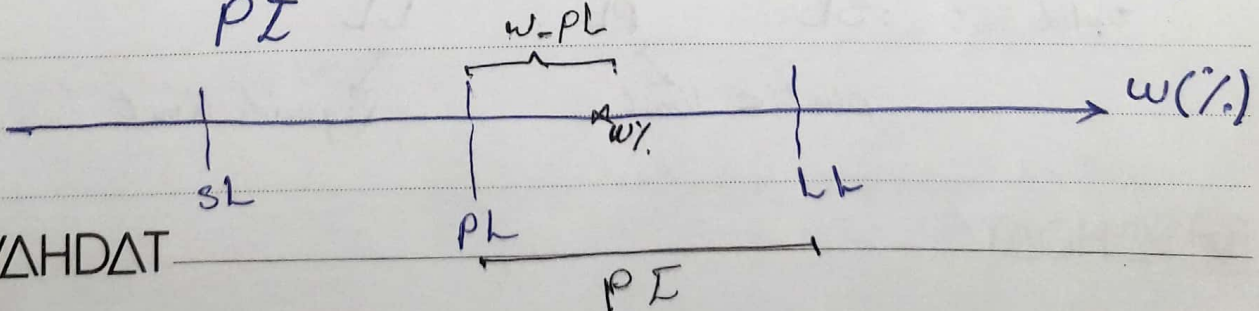 PI
w-PL
w(%)
w%
SL
PL
LL
VAHDAT
PI